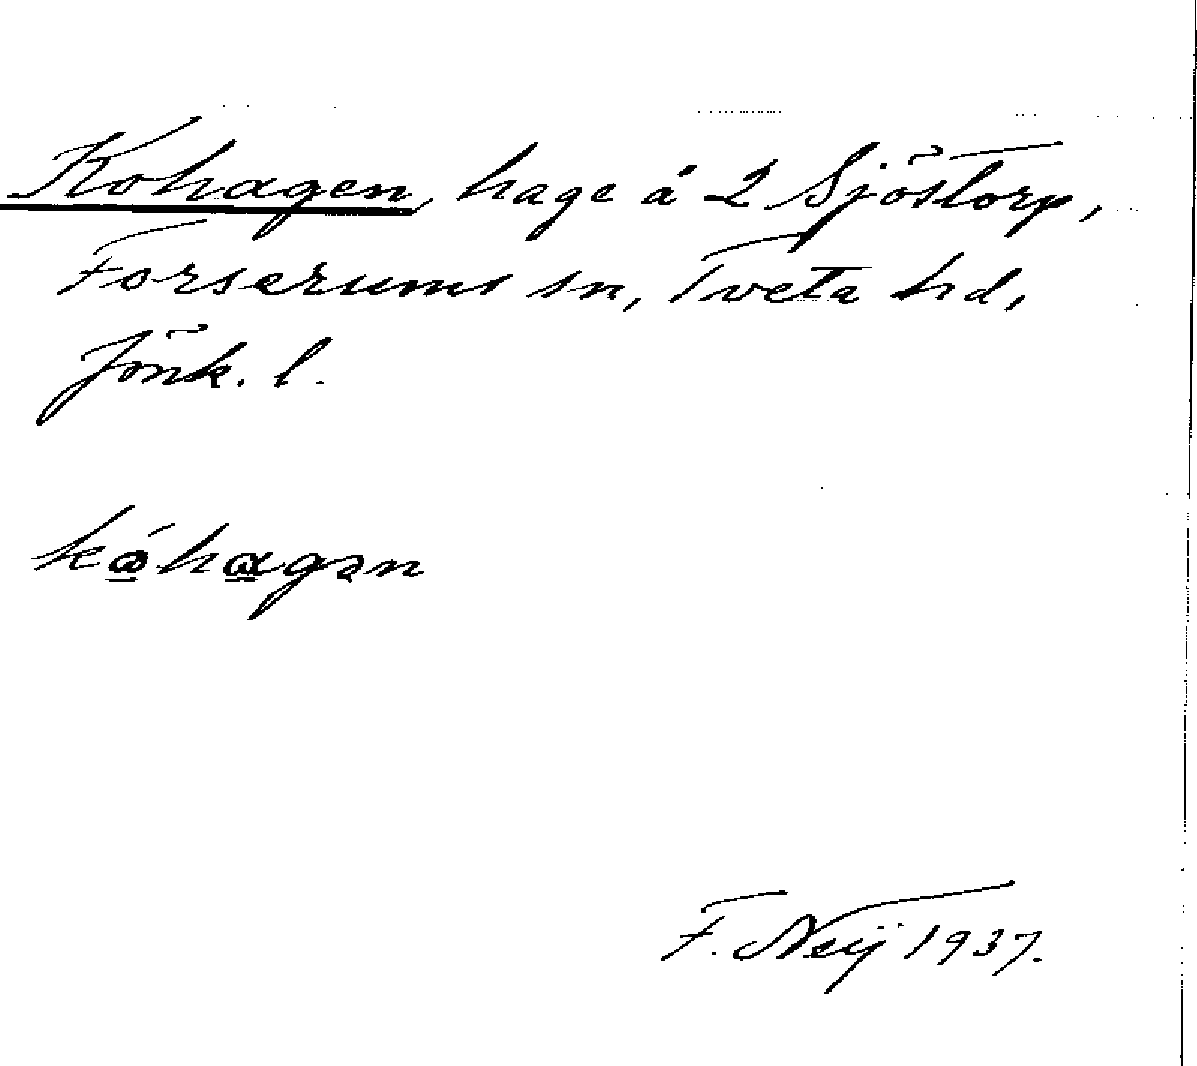 Kohagen, hage å 2 Sjöstorp,
Forserums sn, Tveta hd,
Jönk. l.
F. Neij 1937.